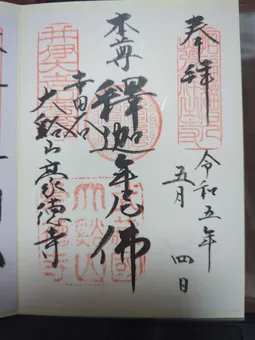 奉拝
令和五年
五月四日
本尊
釋迦牟尼佛
世田谷
大谿山豪徳寺